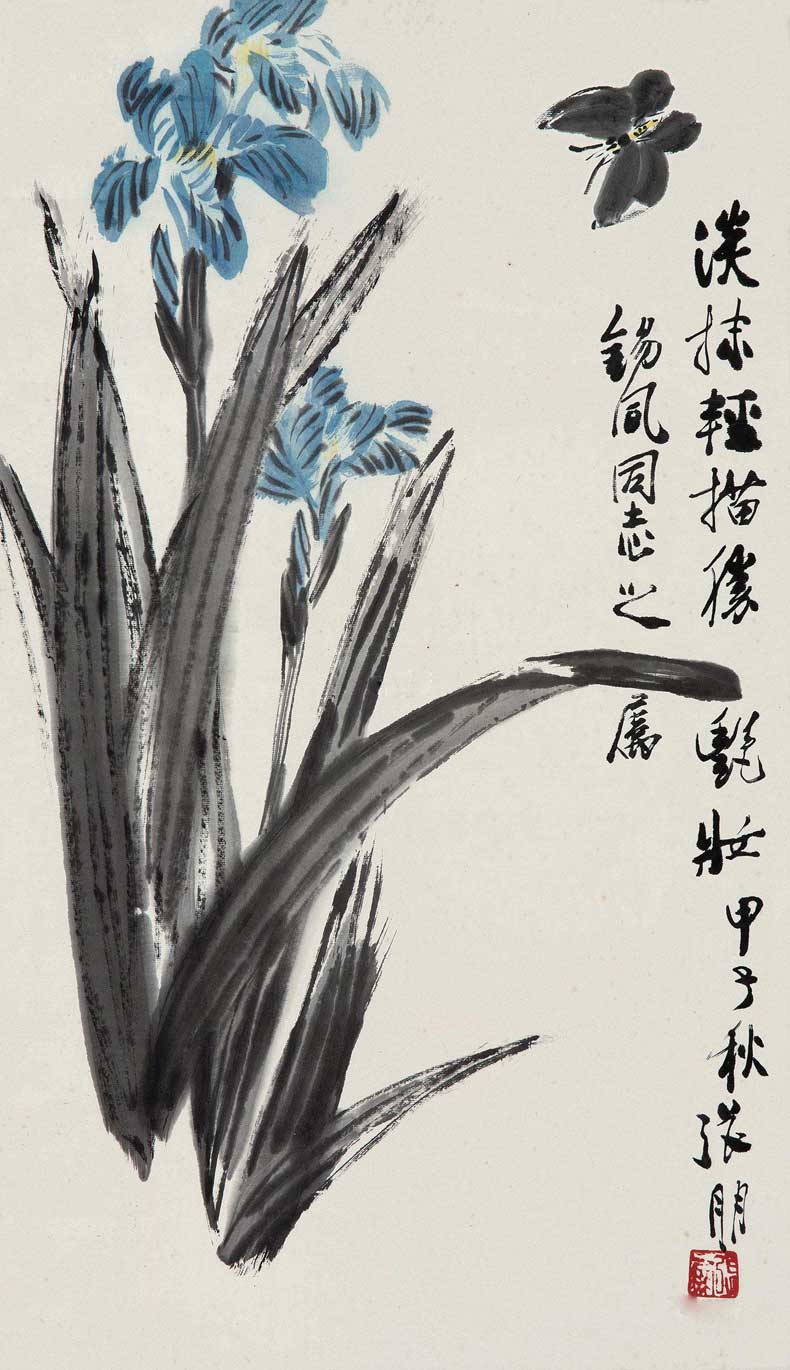 淡抹輕描勝艷妝甲子秋張朋
錫凤同志之屬